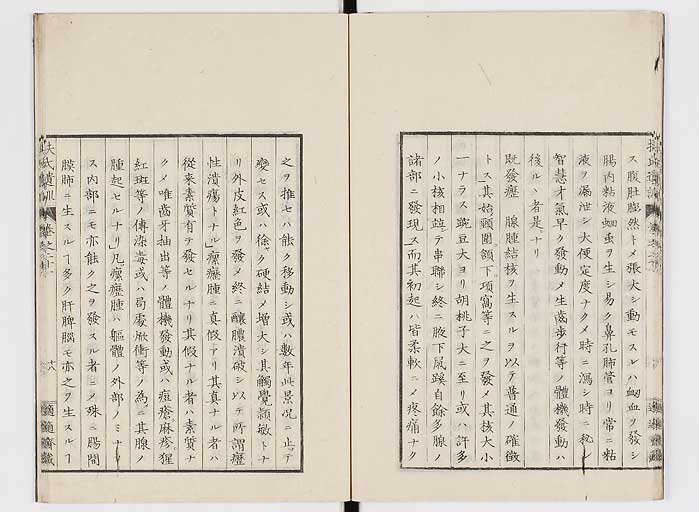 ス腹肚膨然トメ張大シ動モスレハ衄血ヲ發シ
腸內粘液蛔虫ヲ生シ易ク鼻孔肺管ヨリ常ニ粘
液ヲ漏泄シ大便定度ナクメ時ニ瀉シ時ニ秘シ
智慧才氣早ク發動メ生齒歩行等ノ體機發動ハ
後ルヽ者是ナリ
既發癧 腺腫結核ヲ生スルヲ以テ普通ノ確徴
トス其始顋圍頷下項窩等ニ之ヲ發メ其核大小
一ナラス豌豆大ヨリ胡桃子大ニ至リ或ハ許多
ノ小核相並テ串聯シ終ニ腋下鼠蹊自餘多腺ノ
諸部ニ發現ス而其初起ハ皆柔軟ニメ疼痛ナク
之ヲ推セハ能ク移動シ或ハ數年此景况ニ止テ
變セス或ハ徐々ク硬結メ增大シ其觸覺纇敏トナ
リ外皮紅色ヲ發メ終ニ釀膿潰破シ以テ所謂癧
性潰瘍トナル瘰癧腫ニ真假アリ其真ナル者ハ
從來素質有テ發セルナリ其假ナル者ハ素質ナ
クメ唯齒牙抽出等ノ體機發動或ハ痘瘡麻疹猩
紅斑等ノ傳染毒或ハ局處焮衝等ノ為ニ其腺ノ
腫起セルナリ凡瘰癧腫ハ軀體ノ外部ノミナラ
ス內部ニモ亦能ク之ヲ發スル者ニメ殊ニ腸間
膜肺ニ生スルヿ多ク肝脾腦モ亦之ヲ生スルヿ
扶氏遺訓 卷之十 十八